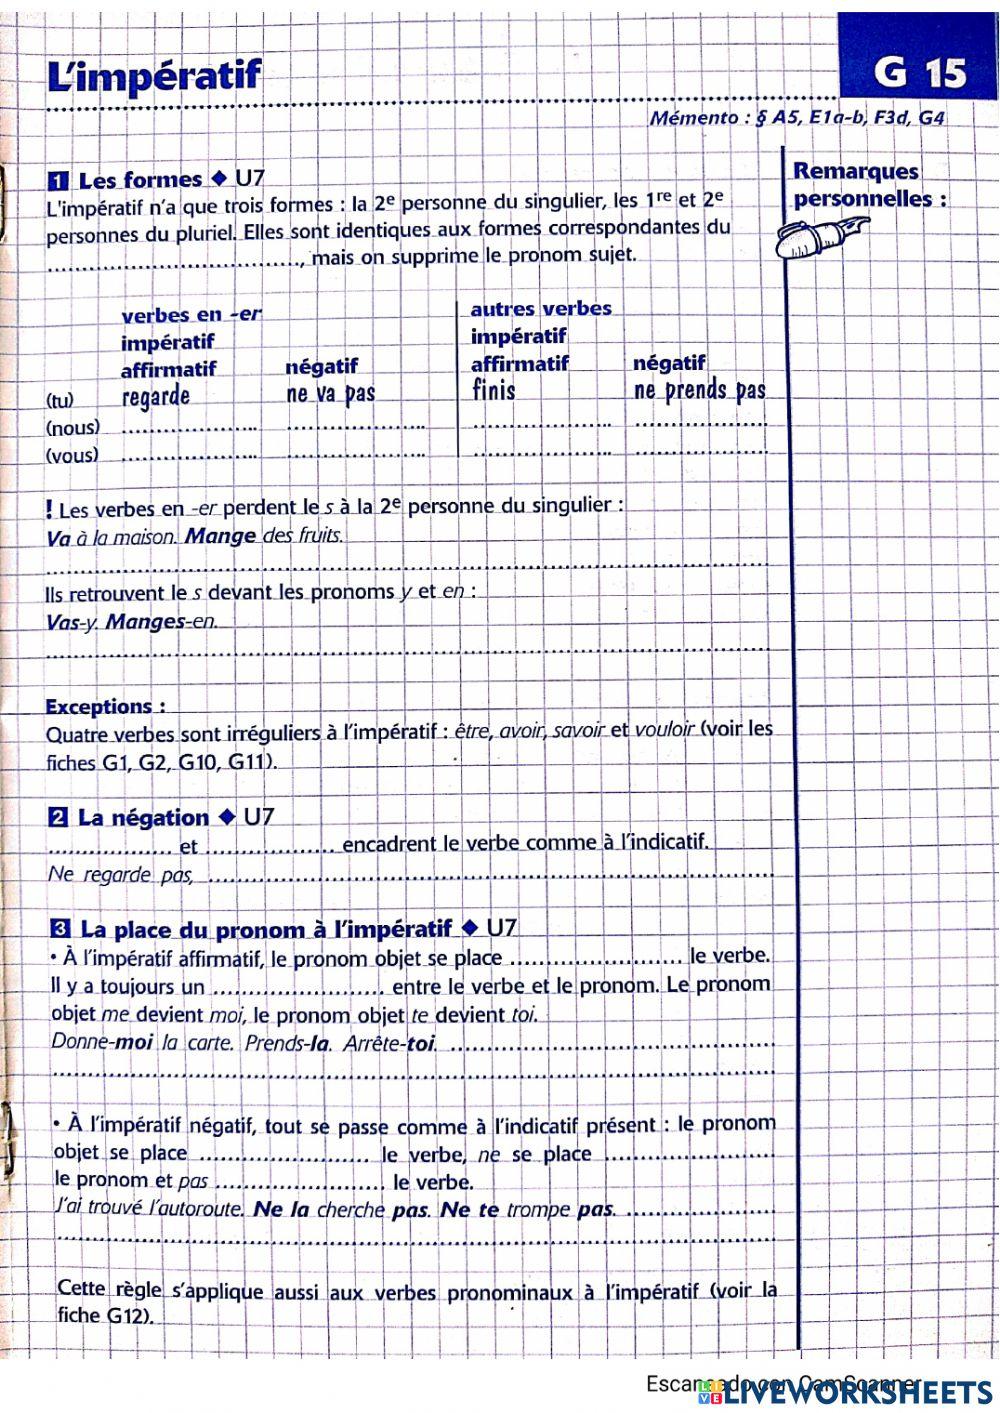 L'impératif
G 15
Mémento : § A5, E1a-b, F3d, G4
1 Les formes ◆ U7
L'impératif n'a que trois formes : la 2e personne du singulier, les 1re et 2e
personnes du pluriel. Elles sont identiques aux formes correspondantes du
................................., mais on supprime le pronom sujet.
Remarques
personnelles :
verbes en -er
impératif
affirmatif négatif
autres verbes
impératif
affirmatif négatif
(tu) regarde ne va pas finis ne prends pas
(nous) .................... .................... .................... ....................
(vous) .................... .................... .................... ....................
! Les verbes en -er perdent le s à la 2e personne du singulier :
Va à la maison. Mange des fruits.
Ils retrouvent le s devant les pronoms y et en :
Vas-y. Manges-en.
Exceptions :
Quatre verbes sont irréguliers à l'impératif : être, avoir, savoir et vouloir (voir les
fiches G1, G2, G10, G11).
2 La négation ◆ U7
.................. et ................... encadrent le verbe comme à l'indicatif.
Ne regarde pas, ....................
3 La place du pronom à l'impératif ◆ U7
• À l'impératif affirmatif, le pronom objet se place ......................... le verbe.
Il y a toujours un ......................... entre le verbe et le pronom. Le pronom
objet me devient moi, le pronom objet te devient toi.
Donne-moi la carte. Prends-la. Arrête-toi. ....................
• À l'impératif négatif, tout se passe comme à l'indicatif présent : le pronom
objet se place ......................... le verbe, ne se place .........................
le pronom et pas ......................... le verbe.
J'ai trouvé l'autoroute. Ne la cherche pas. Ne te trompe pas. ....................
Cette règle s'applique aussi aux verbes pronominaux à l'impératif (voir la
fiche G12).
Escaneado con CamScanner
LIVEWORKSHEETS